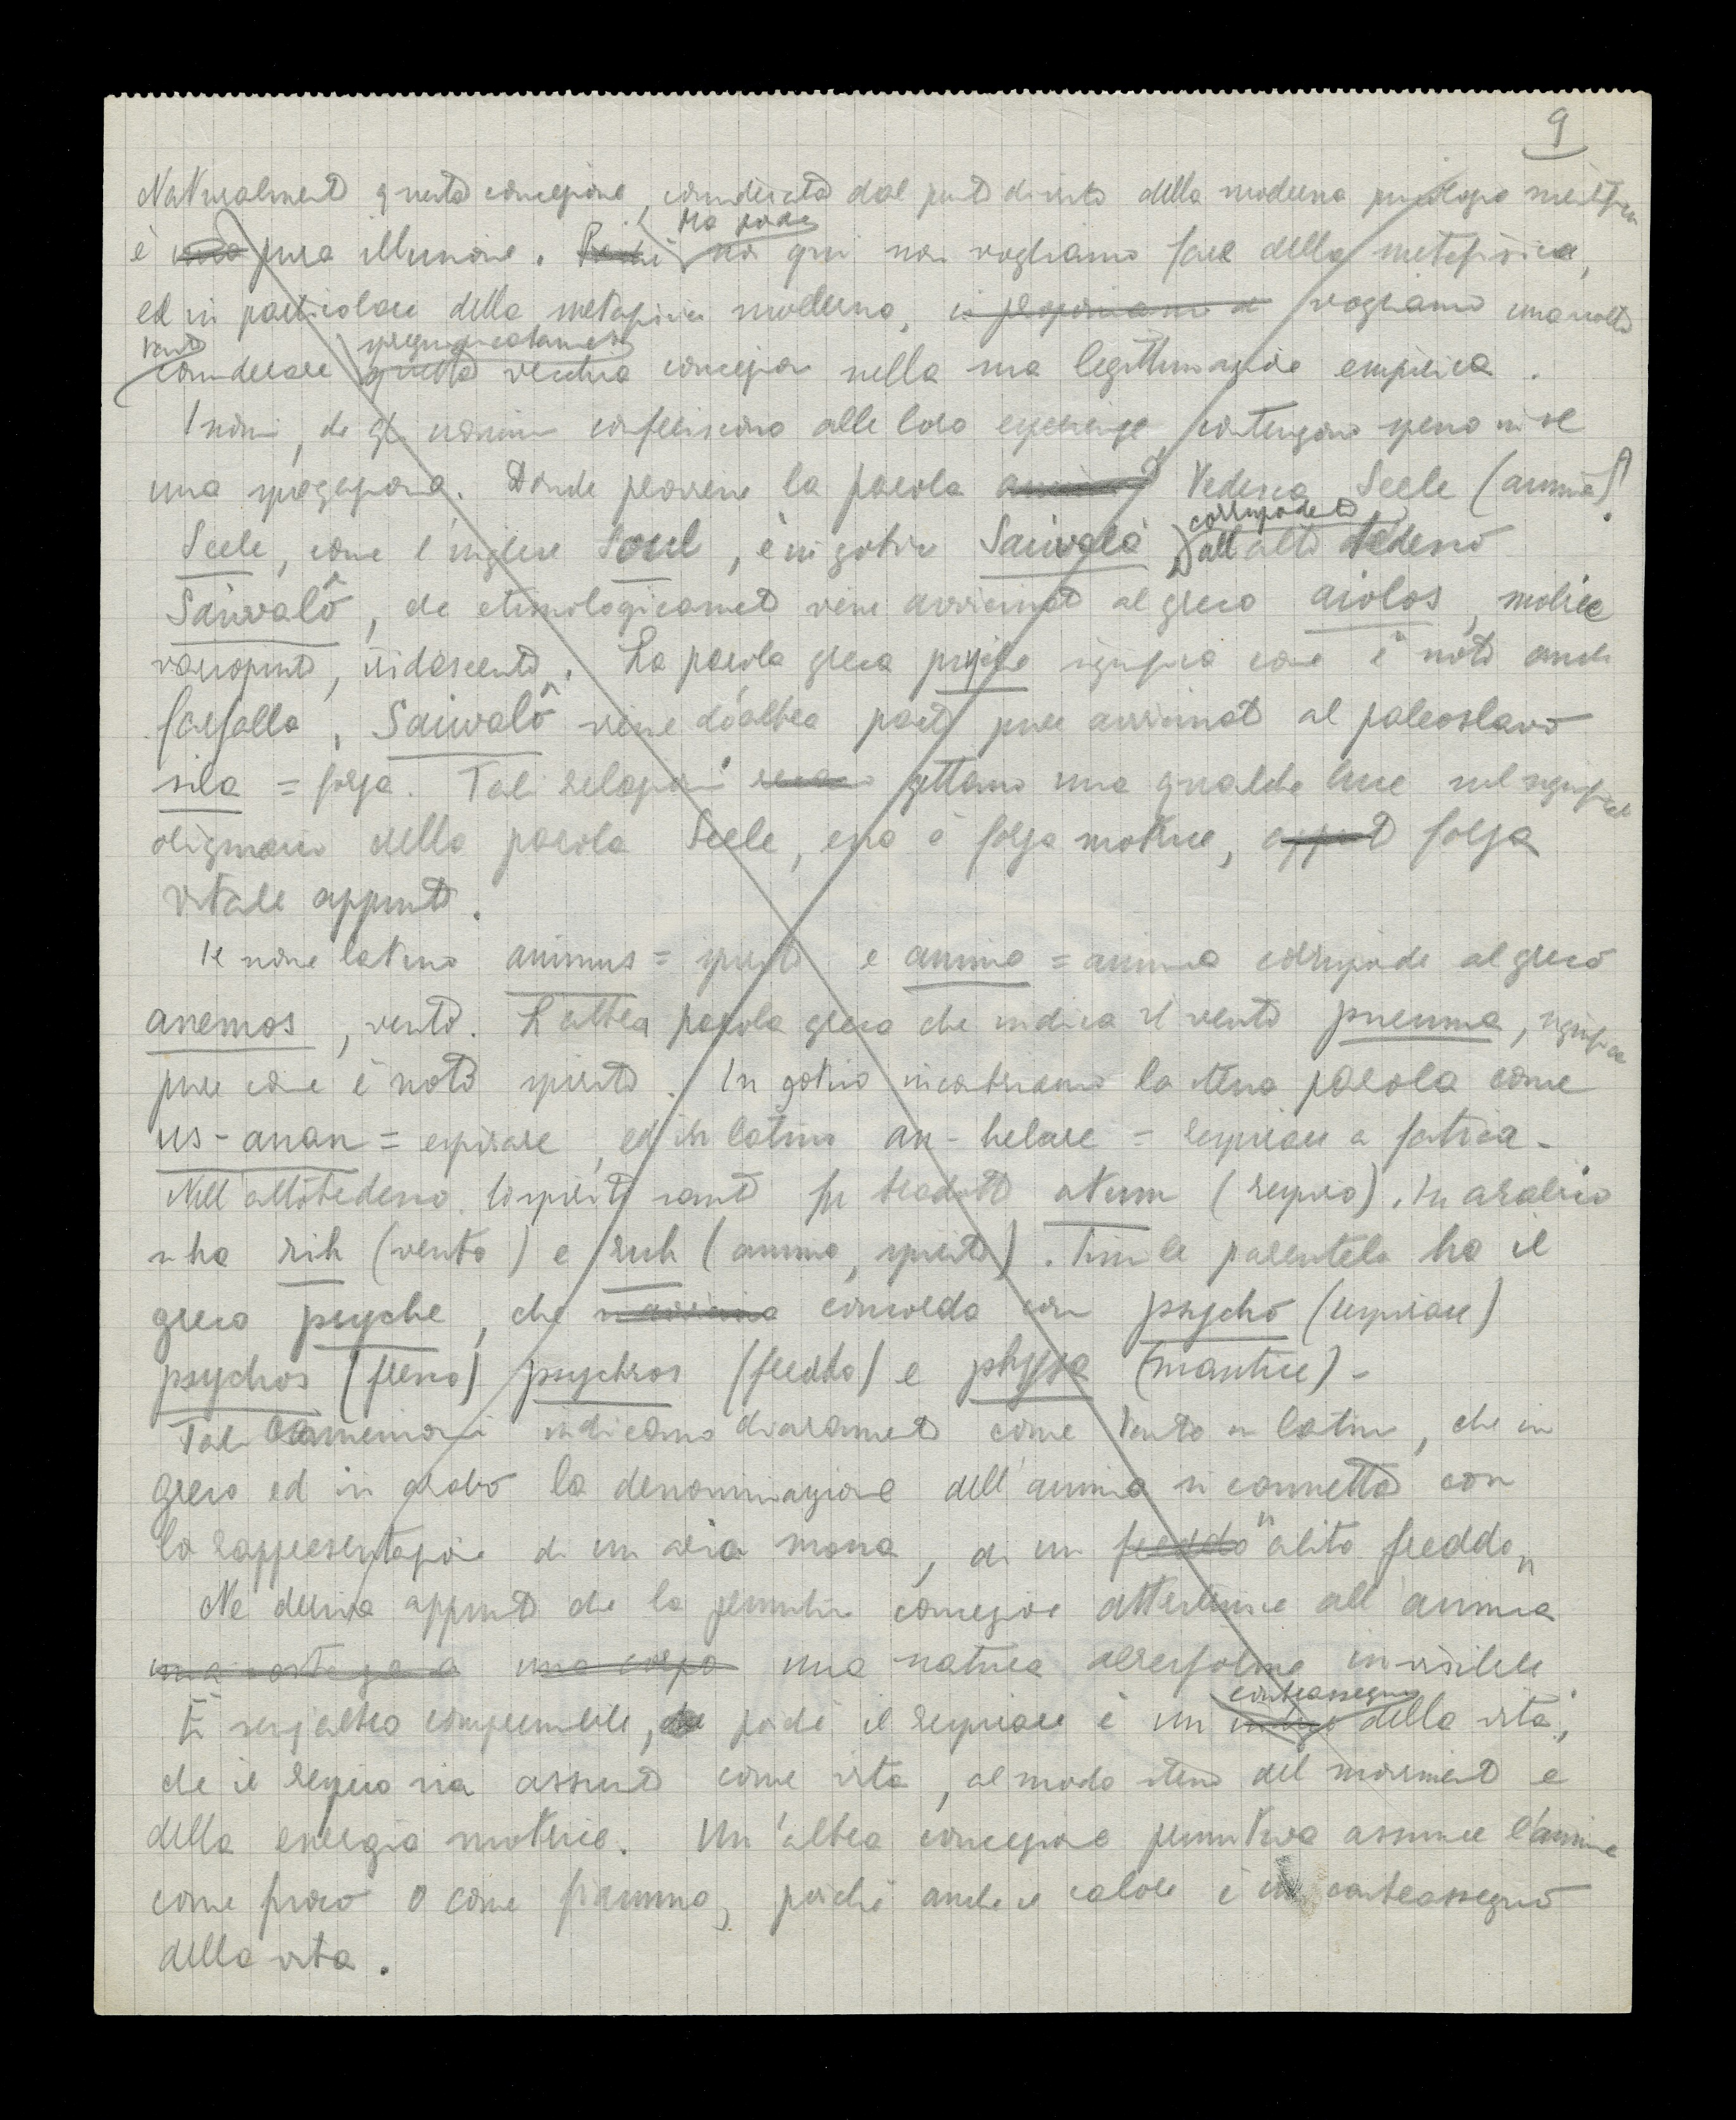 9
Naturalmente questa concezione, considerata dal punto di vista della moderna psicologia scientifica
è una pura illusione. Perché ma poiché noi qui non vogliamo fare della metafisica,
ed in particolare della metafisica moderna, ci proponiamo di vogliamo una volta
tanto considerare spregiudicatamente questa vecchia concezione nella sua legittimazione empirica.
I nomi, che gli uomini conferiscono alle loro esperienze contengono spesso in sé
una spiegazione. Donde proviene la parola tedesca Seele (anima)?
Seele, come l'inglese Soul, è in gotico Saiwala corrispondente all'alto tedesco
Saiwalô, che etimologicamente viene avvicinato al greco aiolos, mobile
variopinto, iridescente. La parola greca psyche significa come è noto anche
farfalla. Saiwalô viene d'altra parte pure avvicinato al paleoslavo
sila = forza. Tali relazioni gettano una qualche luce sul significato
originario della parola Seele, essa è forza motrice, appunto forza
vitale appunto.
Il nome latino animus = spirito e anima = anima corrisponde al greco
anemos, vento. L'altra parola greca che indica il vento pneuma, significa
pure come è noto spirito. In gotico incontriamo la stessa parola come
us-anan = espirare, ed in latino an-helare = respirare a fatica.
Nell'alto tedesco lo spirito santo fu tradotto atum (respiro). In arabico
si ha rih (vento) e ruh (anima, spirito). Simile parentela ha il
greco psyche, che concorda con psycho (respirare)
psychos (fresco) psychros (freddo) e physa (mantice).
Tali connessioni indicano chiaramente come tanto in latino, che in
greco ed in arabo la denominazione dell'anima si connetta con
la rappresentazione di un aria mossa, di un freddo "alito freddo"
Ne deriva appunto che la primitiva concezione attribuisce all'anima
una corpo una natura aereiforme invisibile
È senz'altro comprensibile, che poiché il respirare è un contrassegno della vita,
che il respiro sia assunto come vita, al modo stesso del movimento e
della energia motrice. Un'altra concezione primitiva assume l'anima
come fuoco o come fiamma, poiché anche il calore è un contrassegno
della vita.